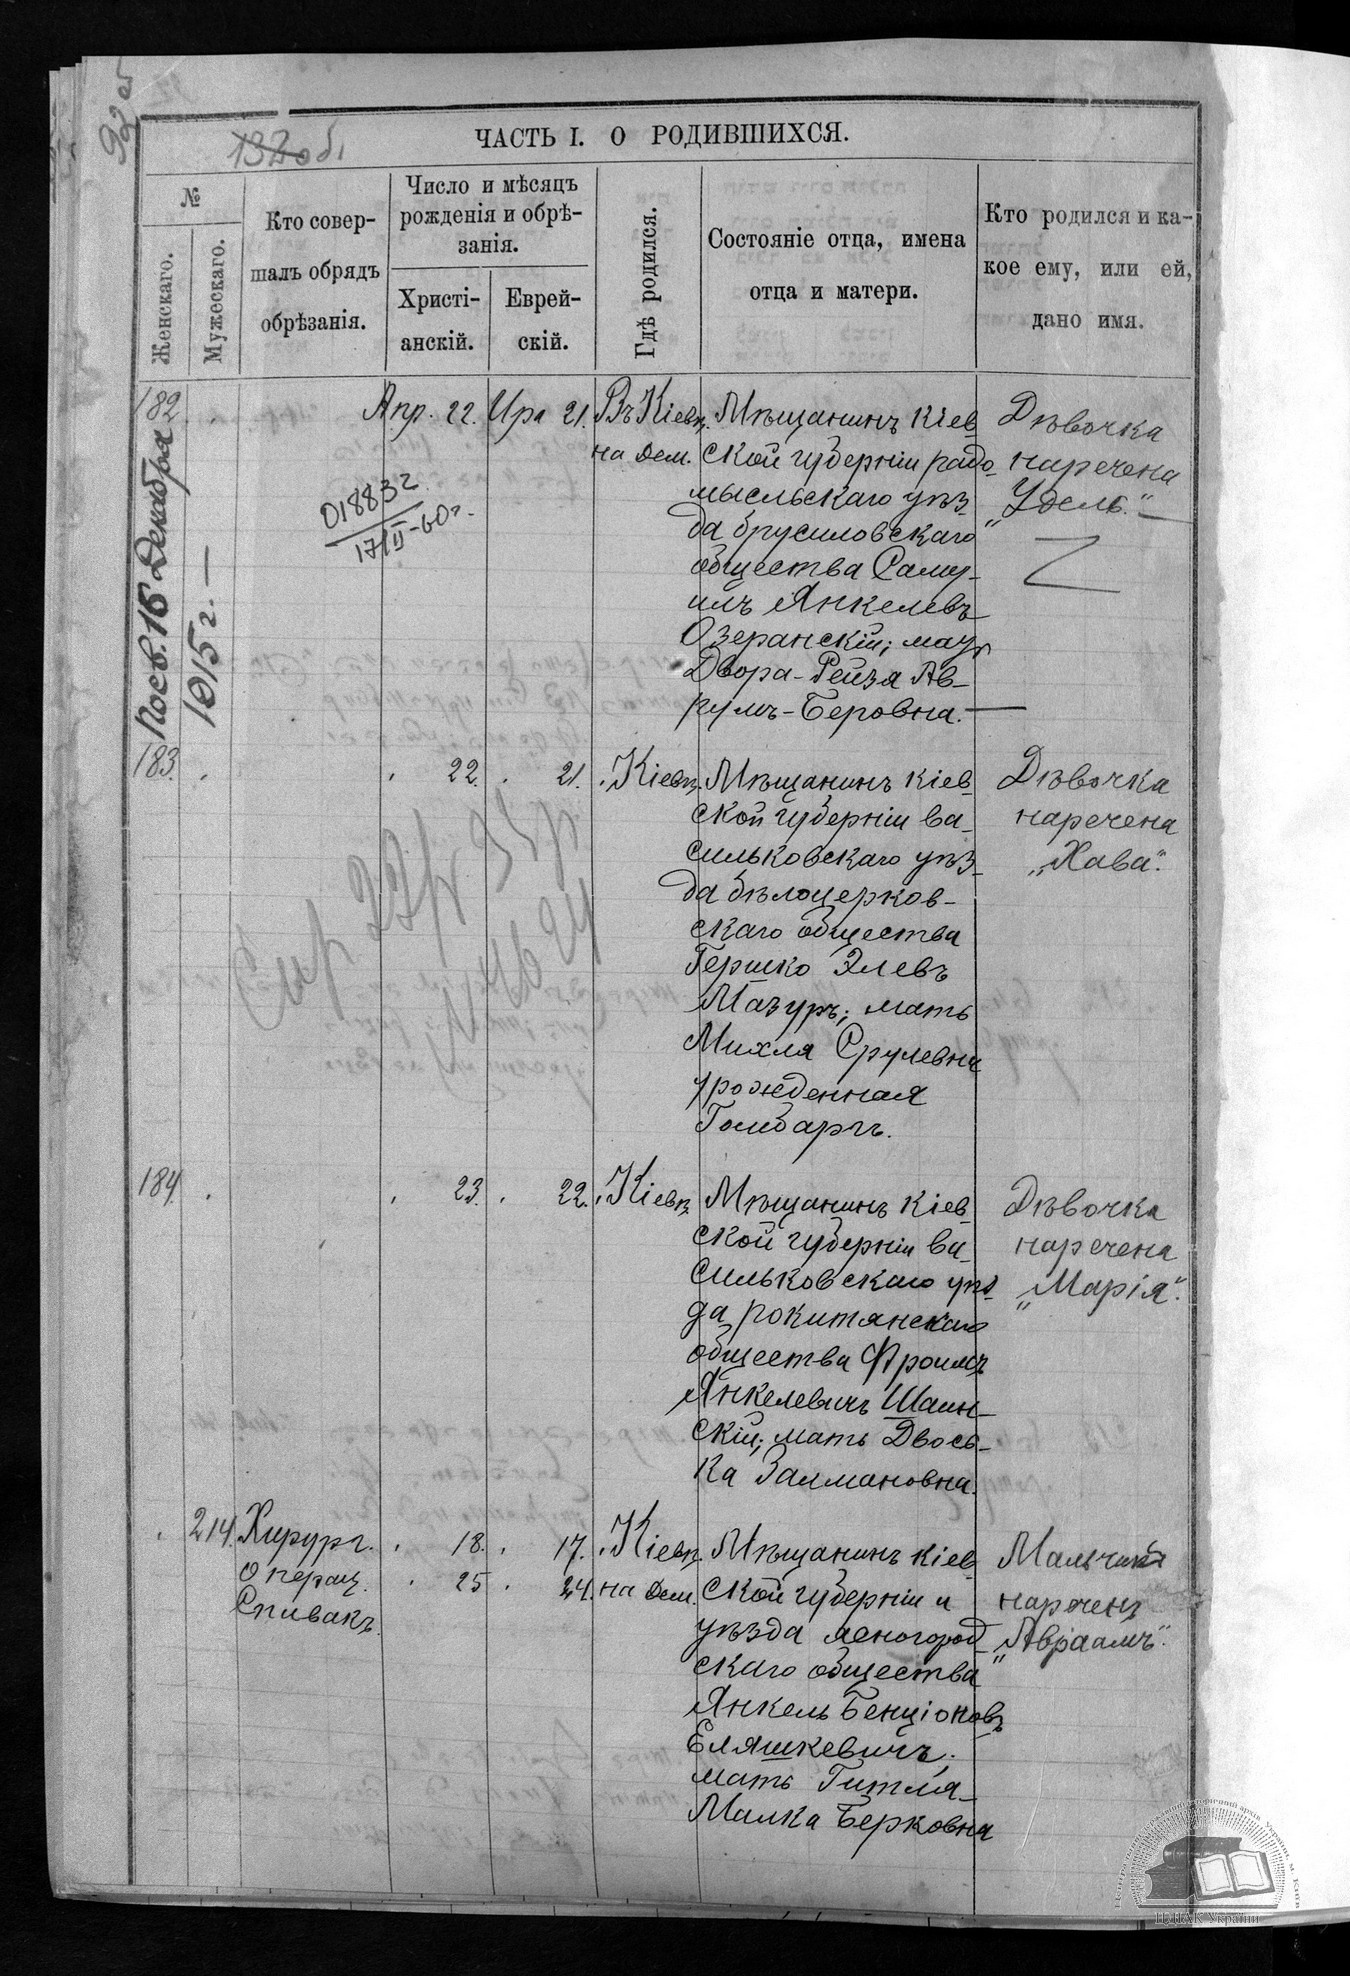 92 об
132 об.
ЧАСТЬ I. О РОДИВШИХСЯ.
№
Женскаго.
Мужескаго.
Кто совер-
шалъ обрядъ
обрѣзанія.
Число и мѣсяцъ
рожденія и обрѣ-
занія.
Христі-
анскій.
Еврей-
скій.
Гдѣ родился.
Состояніе отца, имена
отца и матери.
Кто родился и ка-
кое ему, или ей,
дано имя.
182
Апр. 22. Ира 21.
Въ Кіевѣ
на Дем.
Мѣщанинъ кіев-
ской губерніи радо-
мысльскаго уѣз-
да брусиловскаго
общества Саму-
илъ Янкелевъ
Озеранскій; мать
Двора-Рейзя Ав-
румъ-Беровна. —
Дѣвочка
наречена
"Удель". —
018832
17/II-60г.
15 Декабря
1915 г. —
183.
" 22. " 21. " Кіевѣ.
Мѣщанинъ кіев-
ской губерніи ва-
сильковскаго уѣз-
да бѣлоцерков-
скаго общества
Гершко Элевъ
Мазуръ; мать
Михля Срулевна
урожденная
Дѣвочка
наречена
"Хава".
184.
" 23. " 22. " Кіевѣ
Мѣщанинъ кіев-
ской губерніи ва-
сильковскаго уѣз-
да рокитянскаго
общества Фроимъ
Янкелевичъ Шаин-
скій; мать Двось-
ка Залмановна.
Дѣвочка
наречена
"Марія".
214.
Хирург.
операц.
Спивакъ.
" 18. " 17. " Кіевѣ.
" 25 " 24. на Дем.
Мѣщанинъ кіев-
ской губерніи и
уѣзда ясногород-
скаго общества
Янкель Бенціоновъ
Еляшкевичъ;
мать Гитля-
Малка Берковна
Мальчикъ
нареченъ
"Авраамъ".
ЦДІАК України